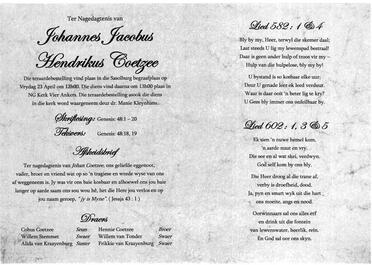 Ter Nagedagtenis van
Johannes Jacobus
Hendrikus Coetzee
Die teraardebestelling vind plaas in die Sasolburg begraafplaas op
Vrydag 23 April om 12h00. Die diens vind daarna om 13h00 plaas in
NG Kerk Vier Ankers. Die teraardebestelling asook die diens
in die kerk word waargeneem deur dr. Manie Kleynhans.
Skriflesing: Genesis: 48:1 – 20
Teksvers: Genesis: 48:18, 19
Afskeidsbrief
Ter nagedagtenis van Johan Coetzee; ons geliefde eggenoot,
vader, broer en vriend wat op so 'n tragiese en wrede wyse van ons
af weggeneem is. Jy was vir ons baie kosbaar en alhoewel ons jou baie
langer op aarde saam ons sou wou hê, het die Here jou verlos en op
jou naam geroep, "jy is Myne" ( Jesaja 43 : 1 )
Draers
Cobus Coetzee Seun Hennie Coetzee Broer
Willem Stemmet Swaer Willem van Tonder Swaer
Aldha van Kraayenburg Swaer Frikkie van Kraayenburg Swaer
Lied 582 : 1 & 4
Bly by my, Heer, terwyl die skemer daal;
Laat steeds U lig my lewenspad bestraal!
Daar is geen ander hulp of troos vir my –
Hulp van die hulpelose, bly my by!
U bystand is so kosbaar elke uur;
Deur U genade leer ek leed verduur.
Waar is daar ooit 'n beter lig te kry?
U Gees bly immer ons onfeilbaar by.
Lied 602 : 1, 3 & 5
Ek sien 'n nuwe hemel kom,
'n aarde nuut en vry.
Die see en al wat skei, verdwyn.
God self kom by ons bly.
Die Heer droog al die trane af,
verby is droefheid, dood.
Ja, pyn en smart wyk uit die hart
ons moeite, angs en nood.
Oorwinnaars sal ons alles erf
en drink uit die fontein
van lewenswater, heerlik, rein.
En God sal oor ons skyn.